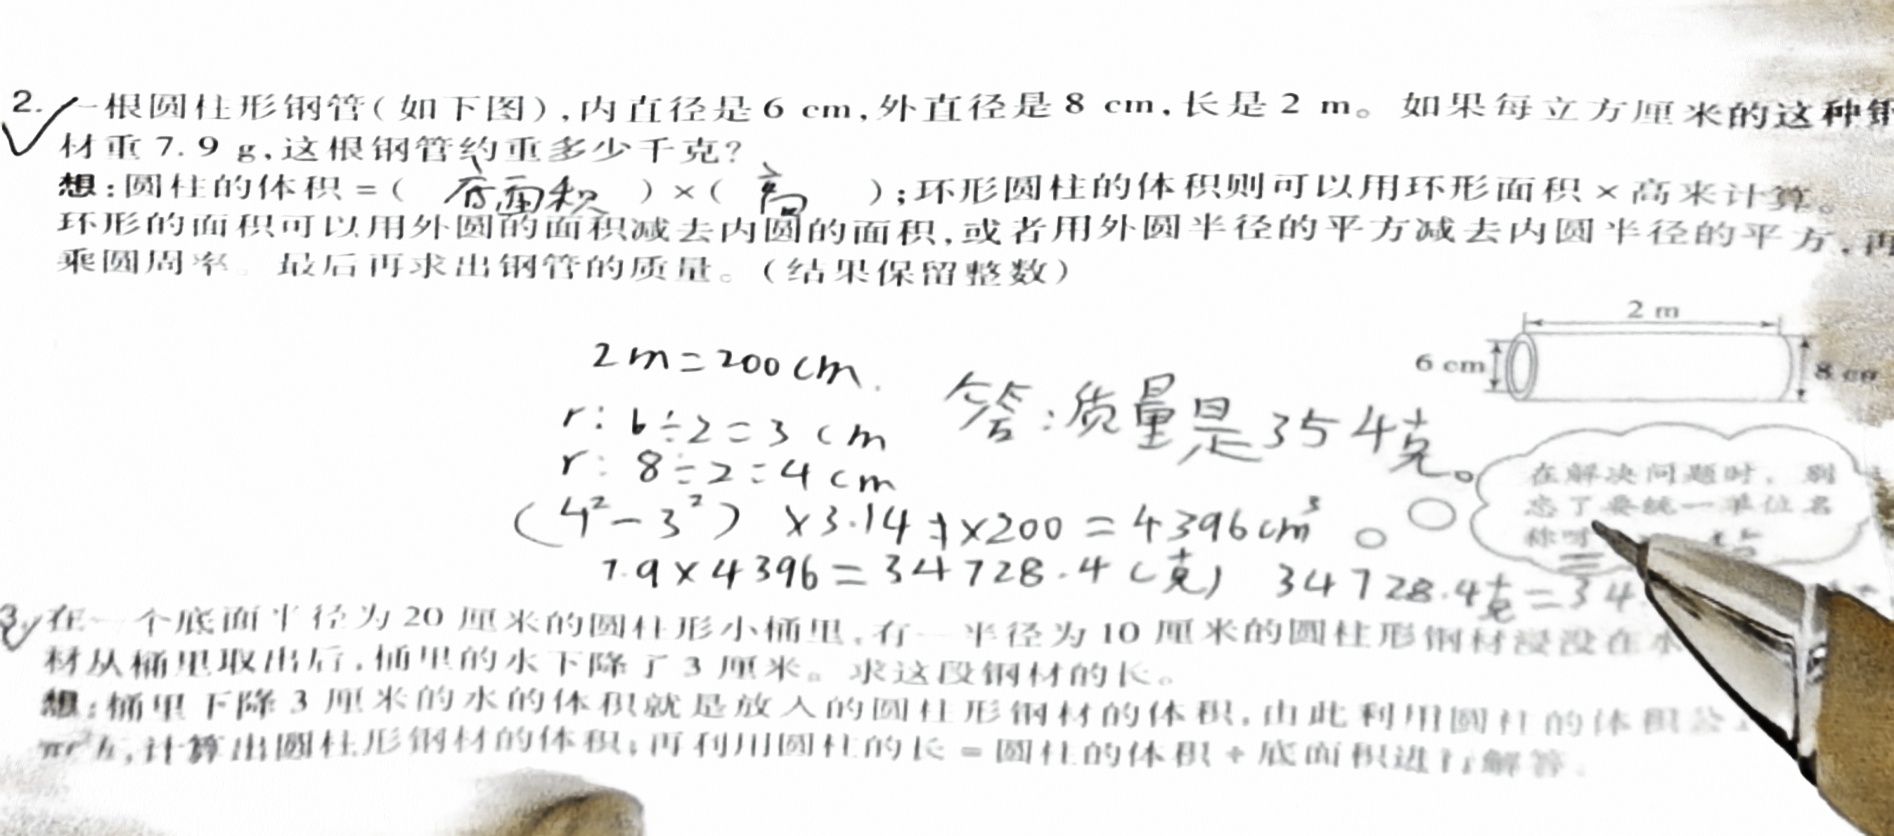 2. 一根圆柱形钢管(如下图),内直径是 6 cm,外直径是 8 cm,长是 2 m。如果每立方厘米的这种钢
材重 7.9 g,这根钢管约重多少千克?
想:圆柱的体积=( 底面积 )×( 高 );环形圆柱的体积则可以用环形面积×高来计算。
环形的面积可以用外圆的面积减去内圆的面积,或者用外圆半径的平方减去内圆半径的平方,再
乘圆周率。最后再求出钢管的质量。(结果保留整数)
2 m
6 cm
8 cm
2m=200cm.
答:质量是354克。
r: 6÷2=3cm
r: 8÷2=4cm
在解决问题时,别
忘了要统一单位名
称呵
(4²-3²)×3.14 ×200=4396cm³
7.9×4396=34728.4(克) 34728.4克=34
3. 在一个底面半径为 20 厘米的圆柱形小桶里,有一半径为 10 厘米的圆柱形钢材浸没在水
材从桶里取出后,桶里的水下降了 3 厘米。求这段钢材的长。
想:桶里下降 3 厘米的水的体积就是放入的圆柱形钢材的体积,由此利用圆柱的体积公
πr²h,计算出圆柱形钢材的体积;再利用圆柱的长=圆柱的体积÷底面积进行解答。